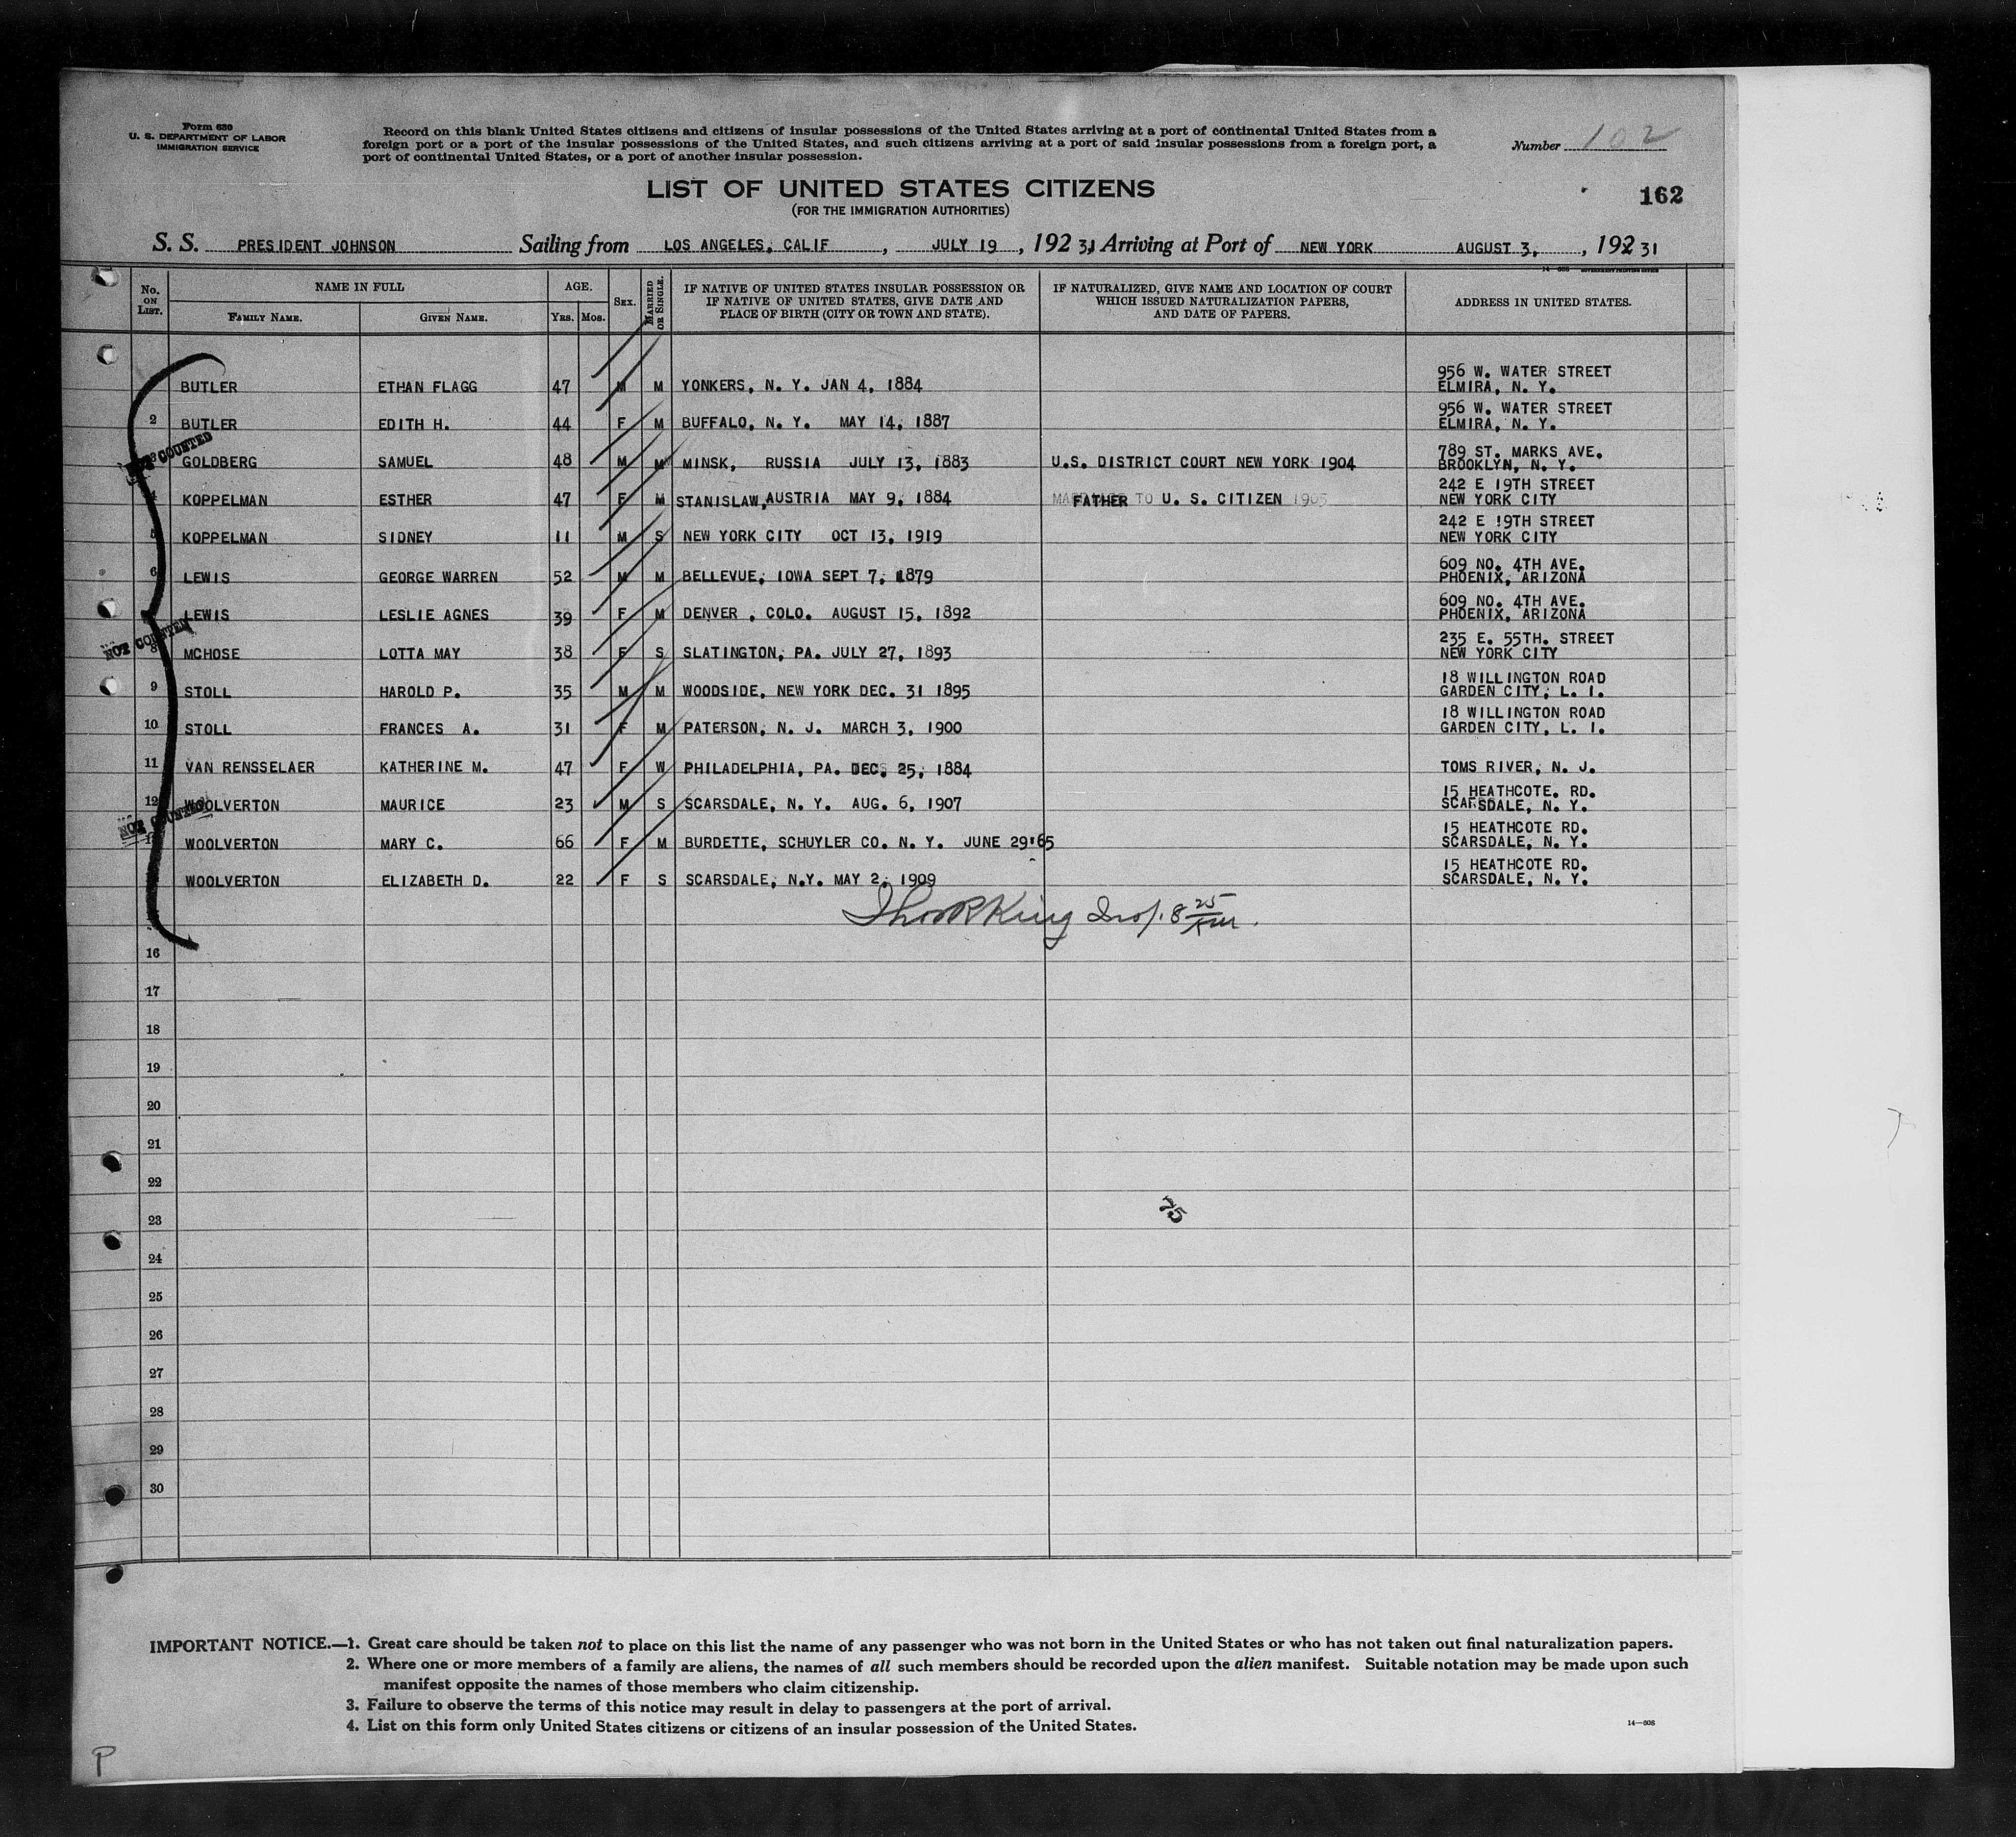 Form 630
U. S. DEPARTMENT OF LABOR
IMMIGRATION SERVICE
Record on this blank United States citizens and citizens of insular possessions of the United States arriving at a port of continental United States from a
foreign port or a port of the insular possessions of the United States, and such citizens arriving at a port of said insular possessions from a foreign port, a
port of continental United States, or a port of another insular possession.
Number 102
LIST OF UNITED STATES CITIZENS
(FOR THE IMMIGRATION AUTHORITIES)
162
S. S. PRESIDENT JOHNSON Sailing from LOS ANGELES, CALIF , JULY 19 , 192 31, Arriving at Port of NEW YORK AUGUST 3, , 192 31
No. ON LIST. NAME IN FULL FAMILY NAME. GIVEN NAME. AGE. YRS. MOS. SEX. MARRIED OR SINGLE. IF NATIVE OF UNITED STATES INSULAR POSSESSION OR IF NATIVE OF UNITED STATES, GIVE DATE AND PLACE OF BIRTH (CITY OR TOWN AND STATE). IF NATURALIZED, GIVE NAME AND LOCATION OF COURT WHICH ISSUED NATURALIZATION PAPERS, AND DATE OF PAPERS. ADDRESS IN UNITED STATES.
BUTLER ETHAN FLAGG 47 M M YONKERS, N. Y. JAN 4, 1884 956 W. WATER STREET ELMIRA, N. Y.
2 BUTLER EDITH H. 44 F M BUFFALO, N. Y. MAY 14, 1887 956 W. WATER STREET ELMIRA, N. Y.
NOT COUNTED
3 GOLDBERG SAMUEL 48 M M MINSK, RUSSIA JULY 13, 1883 U.S. DISTRICT COURT NEW YORK 1904 789 ST. MARKS AVE. BROOKLYN, N. Y.
4 KOPPELMAN ESTHER 47 F M STANISLAW, AUSTRIA MAY 9, 1884 FATHER TO U. S. CITIZEN 1905 242 E 19TH STREET NEW YORK CITY
5 KOPPELMAN SIDNEY 11 M S NEW YORK CITY OCT 13, 1919 242 E 19TH STREET NEW YORK CITY
6 LEWIS GEORGE WARREN 52 M M BELLEVUE, IOWA SEPT 7, 1879 609 NO. 4TH AVE. PHOENIX, ARIZONA
LEWIS LESLIE AGNES 39 F M DENVER , COLO. AUGUST 15, 1892 609 NO. 4TH AVE. PHOENIX, ARIZONA
NOT COUNTED
8 MCHOSE LOTTA MAY 38 F S SLATINGTON, PA. JULY 27, 1893 235 E. 55TH. STREET NEW YORK CITY
9 STOLL HAROLD P. 35 M M WOODSIDE, NEW YORK DEC. 31 1895 18 WILLINGTON ROAD GARDEN CITY, L. I.
10 STOLL FRANCES A. 31 F M PATERSON, N. J. MARCH 3, 1900 18 WILLINGTON ROAD GARDEN CITY, L. I.
11 VAN RENSSELAER KATHERINE M. 47 F W PHILADELPHIA, PA. DEC. 25, 1884 TOMS RIVER, N. J.
12 WOOLVERTON MAURICE 23 M S SCARSDALE, N. Y. AUG. 6, 1907 15 HEATHCOTE. RD. SCARSDALE, N. Y.
NOT COUNTED
13 WOOLVERTON MARY C. 66 F M BURDETTE, SCHUYLER CO. N. Y. JUNE 29'65 15 HEATHCOTE RD. SCARSDALE, N. Y.
WOOLVERTON ELIZABETH D. 22 F S SCARSDALE, N.Y. MAY 2, 1909 15 HEATHCOTE RD. SCARSDALE, N. Y.
King Insp. 8 25
16
17
18
19
20
21
22
75
23
24
25
26
27
28
29
30
IMPORTANT NOTICE.—1. Great care should be taken not to place on this list the name of any passenger who was not born in the United States or who has not taken out final naturalization papers.
2. Where one or more members of a family are aliens, the names of all such members should be recorded upon the alien manifest. Suitable notation may be made upon such
manifest opposite the names of those members who claim citizenship.
3. Failure to observe the terms of this notice may result in delay to passengers at the port of arrival.
4. List on this form only United States citizens or citizens of an insular possession of the United States.
14—808
P